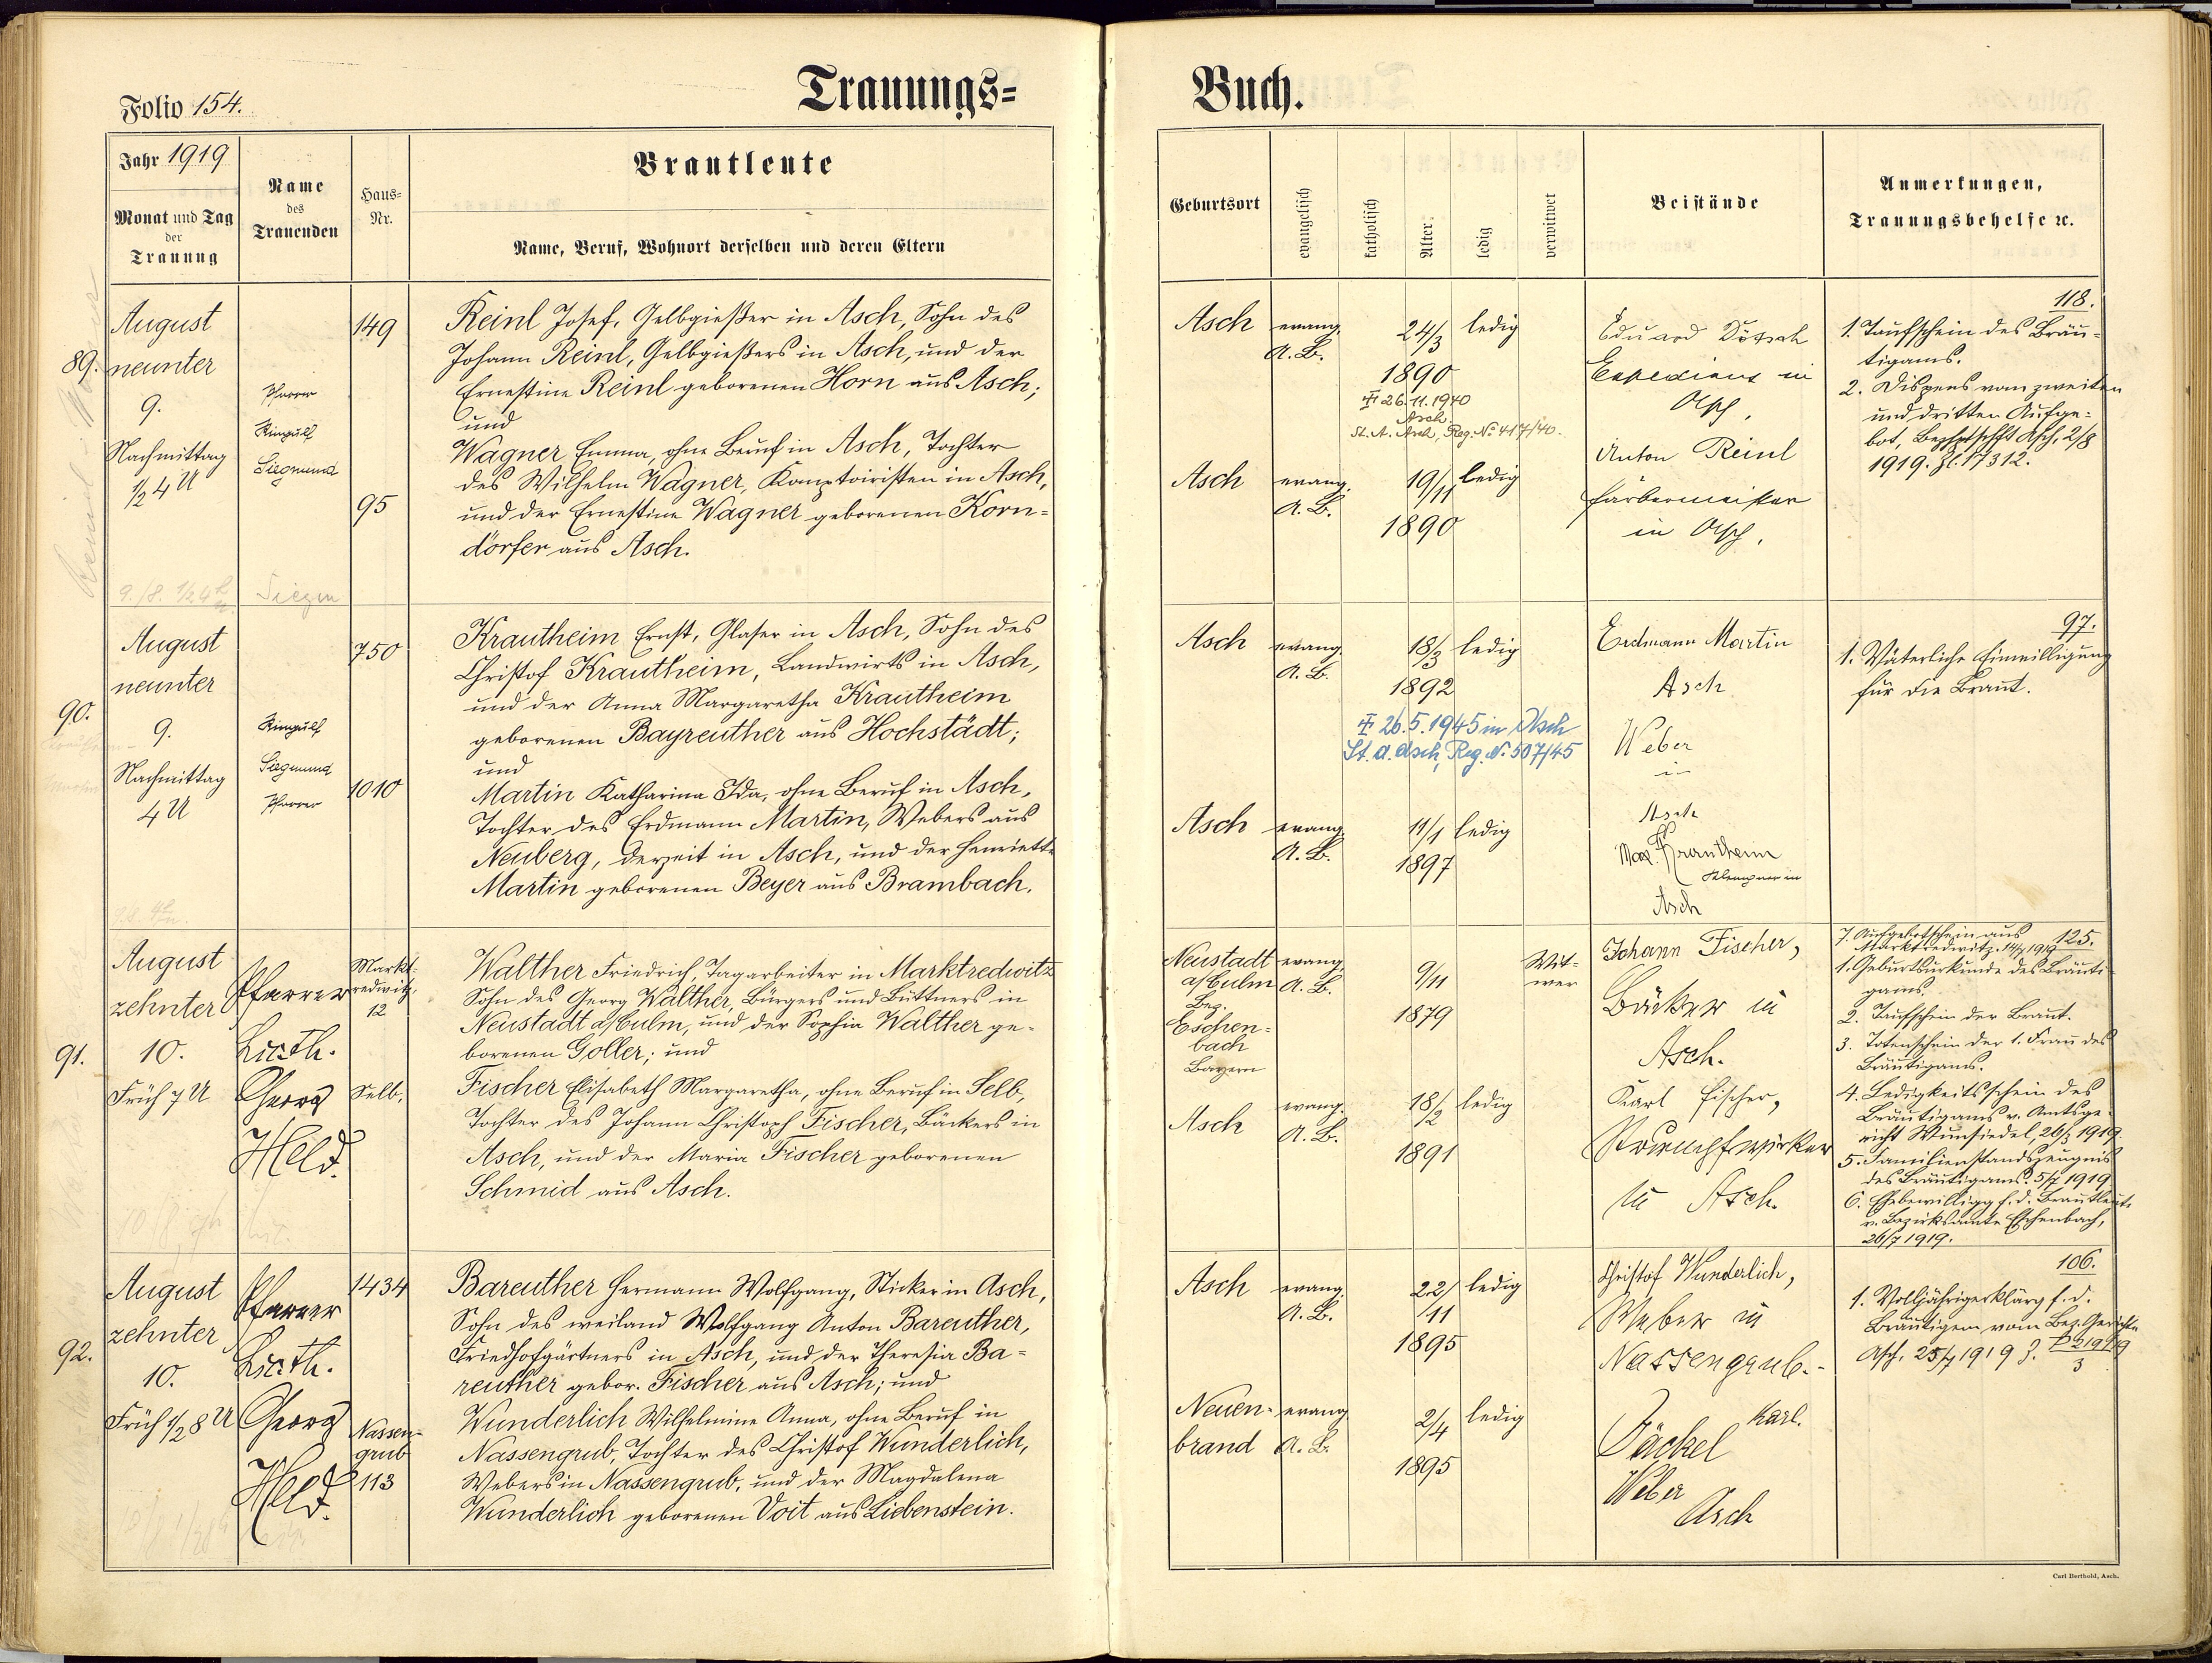 Folio 154.
Trauungs-
Buch.
Jahr 1919
Monat und Tag
der
Trauung
Name
des
Trauenden
Haus-
Nr.
Brautleute
Name, Beruf, Wohnort derselben und deren Eltern
Geburtsort
evangelisch
katholisch
Alter:
ledig
verwitwet
Beistände
Anmerkungen,
Trauungsbehelfe ꝛc.
89.
August
neunter
9.
Nachmittag
1/2 4 U
Pfarrer
Siegmund
149
95
Reinl Josef, Gelbgießer in Asch, Sohn des
Johann Reinl, Gelbgießers in Asch, und der
Ernestine Reinl geborenen Horn aus Asch;
und
Wagner Emma, ohne Beruf in Asch, Tochter
des Wilhelm Wagner, Komptoiristen in Asch,
und der Ernestine Wagner geborenen Korn-
dörfer aus Asch.
9./8. 1/2 4
Asch
evang.
A. B.
24/3
1890
ledig
26.11.1940
Asch
St. A. Asch, Reg. No 417/40.
Asch
evang.
A. B.
19/11
1890
ledig
Eduard
Expedient in
Asch.
Anton Reinl
Färbermeister
in Asch.
118.
1. Taufschein des Bräu-
tigams.
2. Dispens vom zweiten
und dritten Aufge-
bot, Bezhptschft Asch, 2/8
1919. Zl. 17312.
90.
August
neunter
9.
Nachmittag
4 U
Siegmund
Pfarrer
750
1010
Krautheim Ernst, Glaser in Asch, Sohn des
Christof Krautheim, Landwirts in Asch,
und der Anna Margaretha Krautheim
geborenen Bayreuther aus Hochstädt;
und
Martin Katharina Ida, ohne Beruf in Asch,
Tochter des Erdmann Martin, Webers aus
Neuberg, derzeit in Asch, und der Henriette
Martin geborenen Beyer aus Brambach.
Asch
evang.
A. B.
18/3
1892
ledig
26.5.1945 in Asch
St. A. Asch, Reg. N. 507/45
Asch
evang.
A. B.
11/1
1897
ledig
Erdmann Martin
Asch
Weber
in
Asch
Max Krautheim
Klempner in
Asch
97.
1. Väterliche Einwilligung
für die Braut.
91.
August
zehnter
10.
Früh 7 U
Pfarrer
Lic. th.
Georg
Held.
Markt-
redwitz,
12
Selb.
Walther Friedrich, Tagarbeiter in Marktredwitz
Sohn des Georg Walther, Bürgers und Büttners in
Neustadt a/Culm, und der Sophia Walther ge-
borenen Goller; und
Fischer Elisabeth Margaretha, ohne Beruf in Selb,
Tochter des Johann Christoph Fischer, Bäckers in
Asch, und der Maria Fischer geborenen
Schmid aus Asch.
Neustadt
a/Culm
Bez.
Eschen-
bach
Bayern
evang.
A. B.
9/11
1879
Wit-
wer
Asch
evang.
A. B.
18/2
1891
ledig
Johann Fischer,
Bäcker in
Asch.
Karl Fischer,
Strumpfwirker
in Asch.
125.
7. Aufgebotschein aus
Marktredwitz. 14/7 1919
1. Geburtsurkunde des Bräuti-
gams.
2. Taufschein der Braut.
3. Totenschein der 1. Frau des
Bräutigams.
4. Ledigkeitsschein des
Bräutigams v. Amtsge-
richt Wunsiedel, 26/3 1919.
5. Familienstandszeugnis
des Bräutigams. 5/7 1919
6. Ehebewilligg f. d. Brautleute
v. Bezirksamte Eschenbach,
26/7 1919.
92.
August
zehnter
10.
Früh 1/2 8 U
Pfarrer
Lic. th.
Georg
Held.
1434
Nassen-
grub
113
Bareuther Hermann Wolfgang, Sticker in Asch,
Sohn des weiland Wolfgang Anton Bareuther,
Friedhofgärtners in Asch, und der Theresia Ba-
reuther gebor. Fischer aus Asch; und
Wunderlich Wilhelmine Anna, ohne Beruf in
Nassengrub, Tochter des Christof Wunderlich,
Webers in Nassengrub, und der Magdalena
Wunderlich geborenen Voit aus Liebenstein.
Asch
evang.
A. B.
22/11
1895
ledig
Neuen-
brand
evang.
A. B.
2/4
1895
ledig
Christof Wunderlich,
Weber in
Nassengrub.
Karl.
Päckel
Weber
Asch
106.
1. Volljährigerklärg f. d.
Bräutigam vom Bez. Gerichte
Asch, 25/7 1919 Z. P 219/19
3
Carl Berthold, Asch.